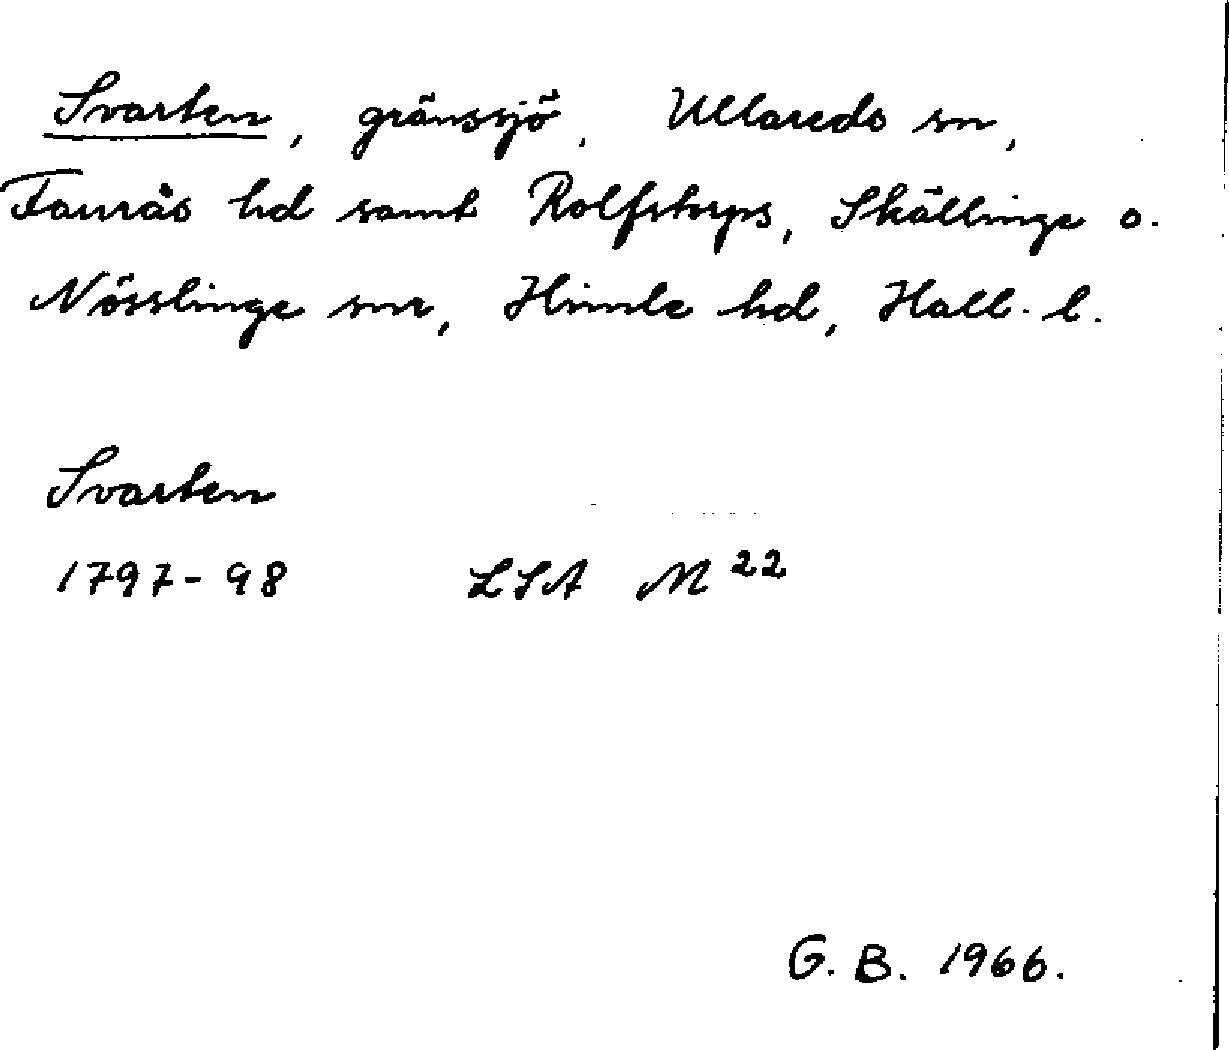 Svarten, gränssjö, Ullareds sn,
Faurås hd samt Rolfstorps, Skällinge o.
Nösslinge snr, Himle hd, Hall. l.
Svarten
1797-98 LSA M 22
G. B. 1966.